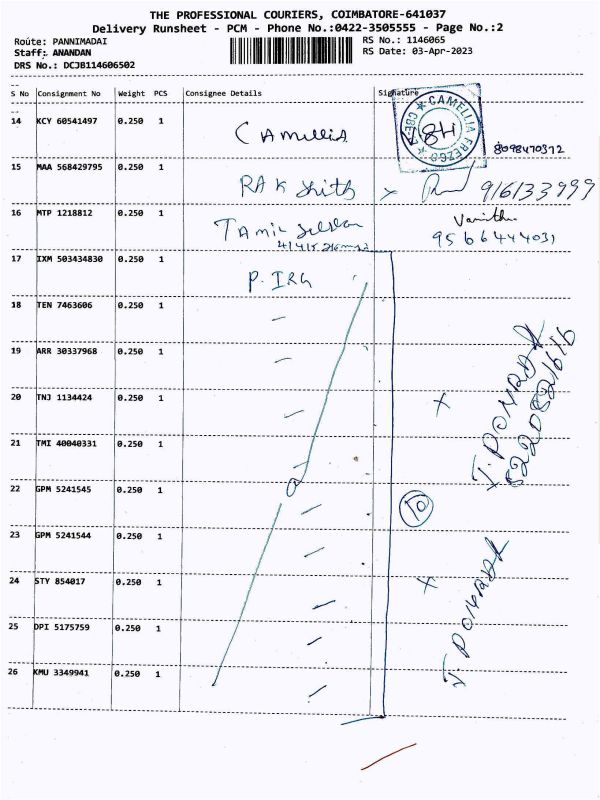 THE PROFESSIONAL COURIERS, COIMBATORE-641037
Delivery Runsheet - PCM - Phone No.:0422-3505555 - Page No.:2
Route: PANNIMADAI
RS No.: 1146065
Staff: ANANDAN
RS Date: 03-Apr-2023
DRS No.: DCJB114606502
S No Consignment No Weight PCS Consignee Details Signature
14 KCY 60541497 0.250 1 CAmellia CAMELLIA FREZGO CBE-17 H8 8098470372
15 MAA 568429795 0.250 1 RAK 916133999
16 MTP 1218812 0.250 1 Tamil Vanitha
9566444031
17 IXM 503434830 0.250 1 P. IRG
18 TEN 7463606 0.250 1 -
19 ARR 30337968 0.250 1 -
20 TNJ 1134424 0.250 1 -
21 TMI 40040331 0.250 1 -
22 GPM 5241545 0.250 1 -
23 GPM 5241544 0.250 1 -
24 STY 854017 0.250 1 -
25 DPI 5175759 0.250 1 -
26 KMU 3349941 0.250 1 -
10
J. PONRAJ
8220821616
J. PONRAJ